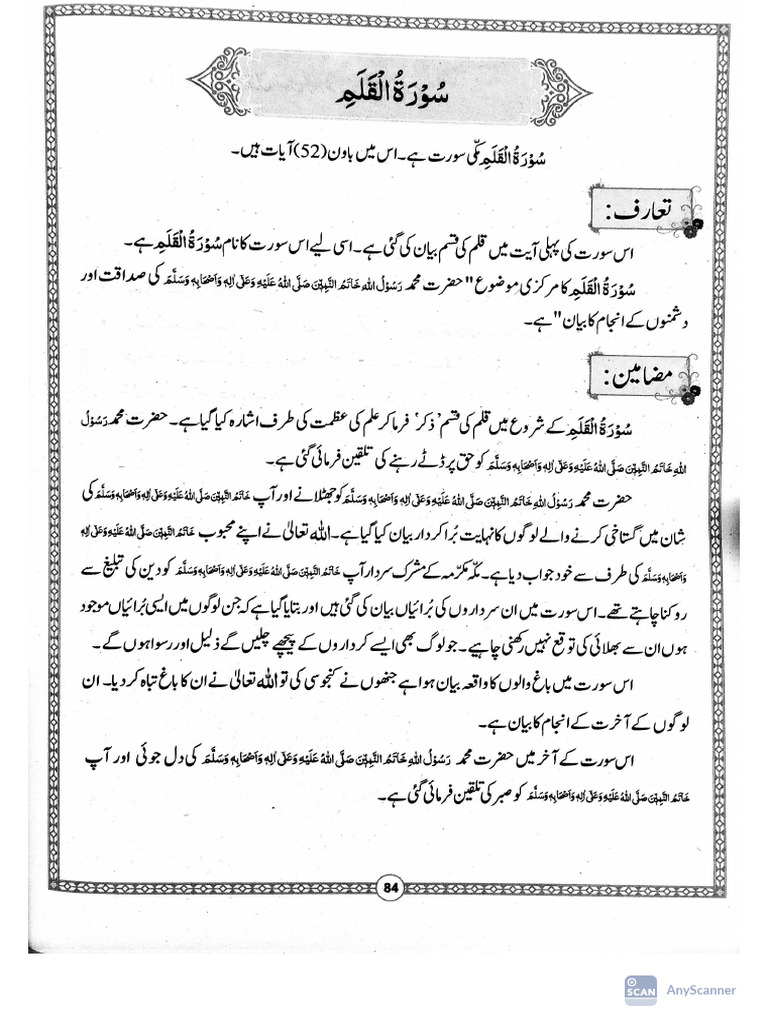 سُوْرَةُ الْقَلَمِ
سُوْرَةُ الْقَلَمِ مکّی سورت ہے۔ اس میں باون (52) آیات ہیں۔
تعارف:
اس سورت کی پہلی آیت میں قلم کی قسم بیان کی گئی ہے۔ اسی لیے اس سورت کا نام سُوْرَةُ الْقَلَمِ ہے۔
سُوْرَةُ الْقَلَمِ کا مرکزی موضوع "حضرت محمد رَسُوْلُ اللهِ خَاتَمُ النَّبِيّٖنَ صَلَّی اللهُ عَلَيْهِ وَعَلٰی اٰلِهٖ وَاَصْحَابِهٖ وَسَلَّمَ کی صداقت اور
دشمنوں کے انجام کا بیان" ہے۔
مضامین:
سُوْرَةُ الْقَلَمِ کے شروع میں قلم کی قسم 'ذکر' فرما کر علم کی عظمت کی طرف اشارہ کیا گیا ہے۔ حضرت محمد رَسُوْلُ
اللهِ خَاتَمُ النَّبِيّٖنَ صَلَّی اللهُ عَلَيْهِ وَعَلٰی اٰلِهٖ وَاَصْحَابِهٖ وَسَلَّمَ کو حق پر ڈٹے رہنے کی تلقین فرمائی گئی ہے۔
حضرت محمد رَسُوْلُ اللهِ خَاتَمُ النَّبِيّٖنَ صَلَّی اللهُ عَلَيْهِ وَعَلٰی اٰلِهٖ وَاَصْحَابِهٖ وَسَلَّمَ کو جھٹلانے اور آپ خَاتَمُ النَّبِيّٖنَ صَلَّی اللهُ عَلَيْهِ وَعَلٰی اٰلِهٖ وَاَصْحَابِهٖ وَسَلَّمَ کی
شان میں گستاخی کرنے والے لوگوں کا نہایت بُرا کردار بیان کیا گیا ہے۔ اللہ تعالیٰ نے اپنے محبوب خَاتَمُ النَّبِيّٖنَ صَلَّی اللهُ عَلَيْهِ وَعَلٰی اٰلِهٖ
وَاَصْحَابِهٖ وَسَلَّمَ کی طرف سے خود جواب دیا ہے۔ مکّہ مکرّمہ کے مشرک سردار آپ خَاتَمُ النَّبِيّٖنَ صَلَّی اللهُ عَلَيْهِ وَعَلٰی اٰلِهٖ وَاَصْحَابِهٖ وَسَلَّمَ کو دین کی تبلیغ سے
روکنا چاہتے تھے۔ اس سورت میں ان سرداروں کی بُرائیاں بیان کی گئی ہیں اور بتایا گیا ہے کہ جن لوگوں میں ایسی بُرائیاں موجود
ہوں ان سے بھلائی کی توقع نہیں رکھنی چاہیے۔ جو لوگ بھی ایسے کرداروں کے پیچھے چلیں گے ذلیل اور رسوا ہوں گے۔
اس سورت میں باغ والوں کا واقعہ بیان ہوا ہے جنھوں نے کنجوسی کی تو اللہ تعالیٰ نے ان کا باغ تباہ کر دیا۔ ان
لوگوں کے آخرت کے انجام کا بیان ہے۔
اس سورت کے آخر میں حضرت محمد رَسُوْلُ اللهِ خَاتَمُ النَّبِيّٖنَ صَلَّی اللهُ عَلَيْهِ وَعَلٰی اٰلِهٖ وَاَصْحَابِهٖ وَسَلَّمَ کی دل جوئی اور آپ
خَاتَمُ النَّبِيّٖنَ صَلَّی اللهُ عَلَيْهِ وَعَلٰی اٰلِهٖ وَاَصْحَابِهٖ وَسَلَّمَ کو صبر کی تلقین فرمائی گئی ہے۔
84
SCAN AnyScanner